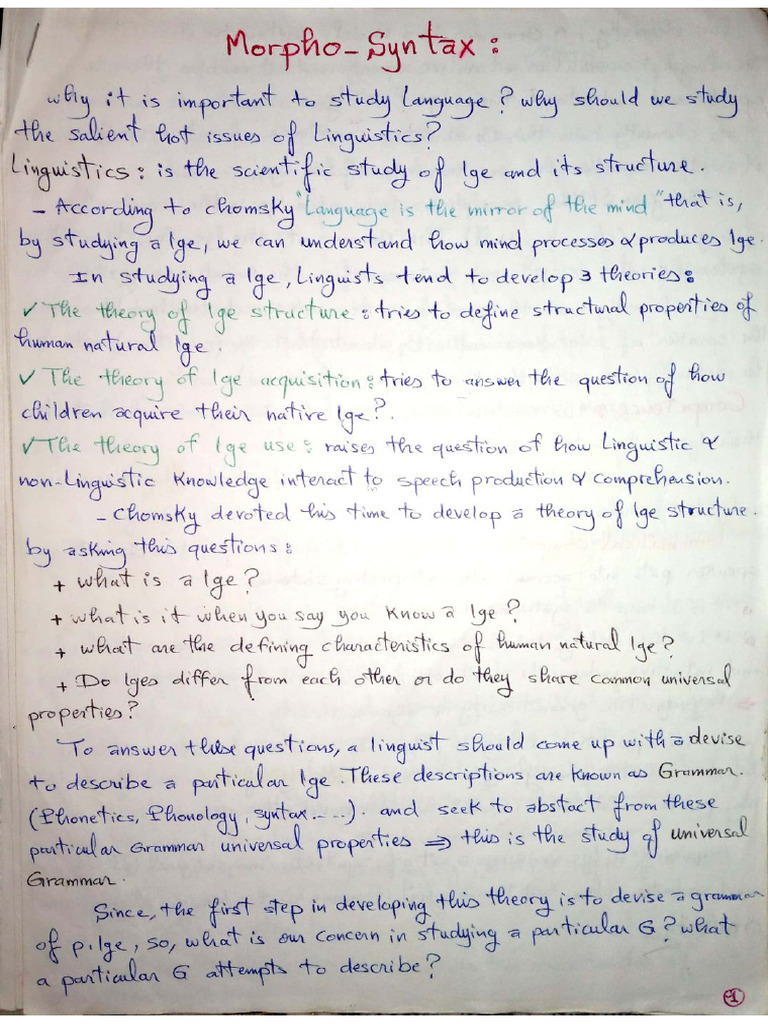 Morpho-Syntax :
why it is important to study Language ? why should we study
the salient hot issues of Linguistics?
Linguistics : is the scientific study of lge and its structure.
- According to Chomsky "Language is the mirror of the mind" that is,
by studying a lge, we can understand how mind processes & produces lge.
In studying a lge, Linguists tend to develop 3 theories :
✓ The theory of lge structure : tries to define structural properties of
human natural lge.
✓ The theory of lge acquisition : tries to answer the question of how
children acquire their native lge ?.
✓ The theory of lge use : raises the question of how Linguistic &
non-Linguistic Knowledge interact to speech production & comprehension.
- Chomsky devoted his time to develop a theory of lge structure.
by asking this questions :
+ what is a lge ?
+ what is it when you say you Know a lge ?
+ what are the defining characteristics of human natural lge ?
+ Do lges differ from each other or do they share common universal
properties ?
To answer these questions, a linguist should come up with a devise
to describe a particular lge. These descriptions are known as Grammar.
(Phonetics, Phonology, syntax.....). and seek to abstact from these
particular Grammar universal properties ⇒ this is the study of universal
Grammar.
Since, the first step in developing this theory is to devise a grammar
of p.lge, so, what is our concern in studying a particular G ? what
a particular G attempts to describe ?
1